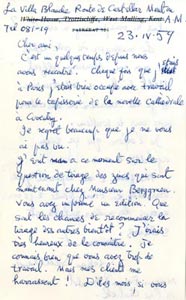 La Villa Blanche Route de Castellar Menton
White House, Trottiscliffe, West Malling, Kent A.M
Tel 081-19
23. IV. 59
Cher ami,
C'est un quelques temps depuis nous
avons rencontré. Chaque fois que j'étais
à Paris j'étais bien occupé avec travail
pour la tapisserie de la nouvelle Cathédrale
à Coventry.
Je regret beaucoup que je ne vous
ai pas vu.
Il était à ce moment sur le
question de tirage des zincs que sont
maintenant chez Monsieur Berggruen.
Vous avez imprimé un édition. Que
sont les chances de recommencer la
tirage des autres bientôt? J'serais
très heureux de le connaitre. Je
connais bien que vous avez trop de
travail. Mais mes clients me
harassent! Dites moi, si vous